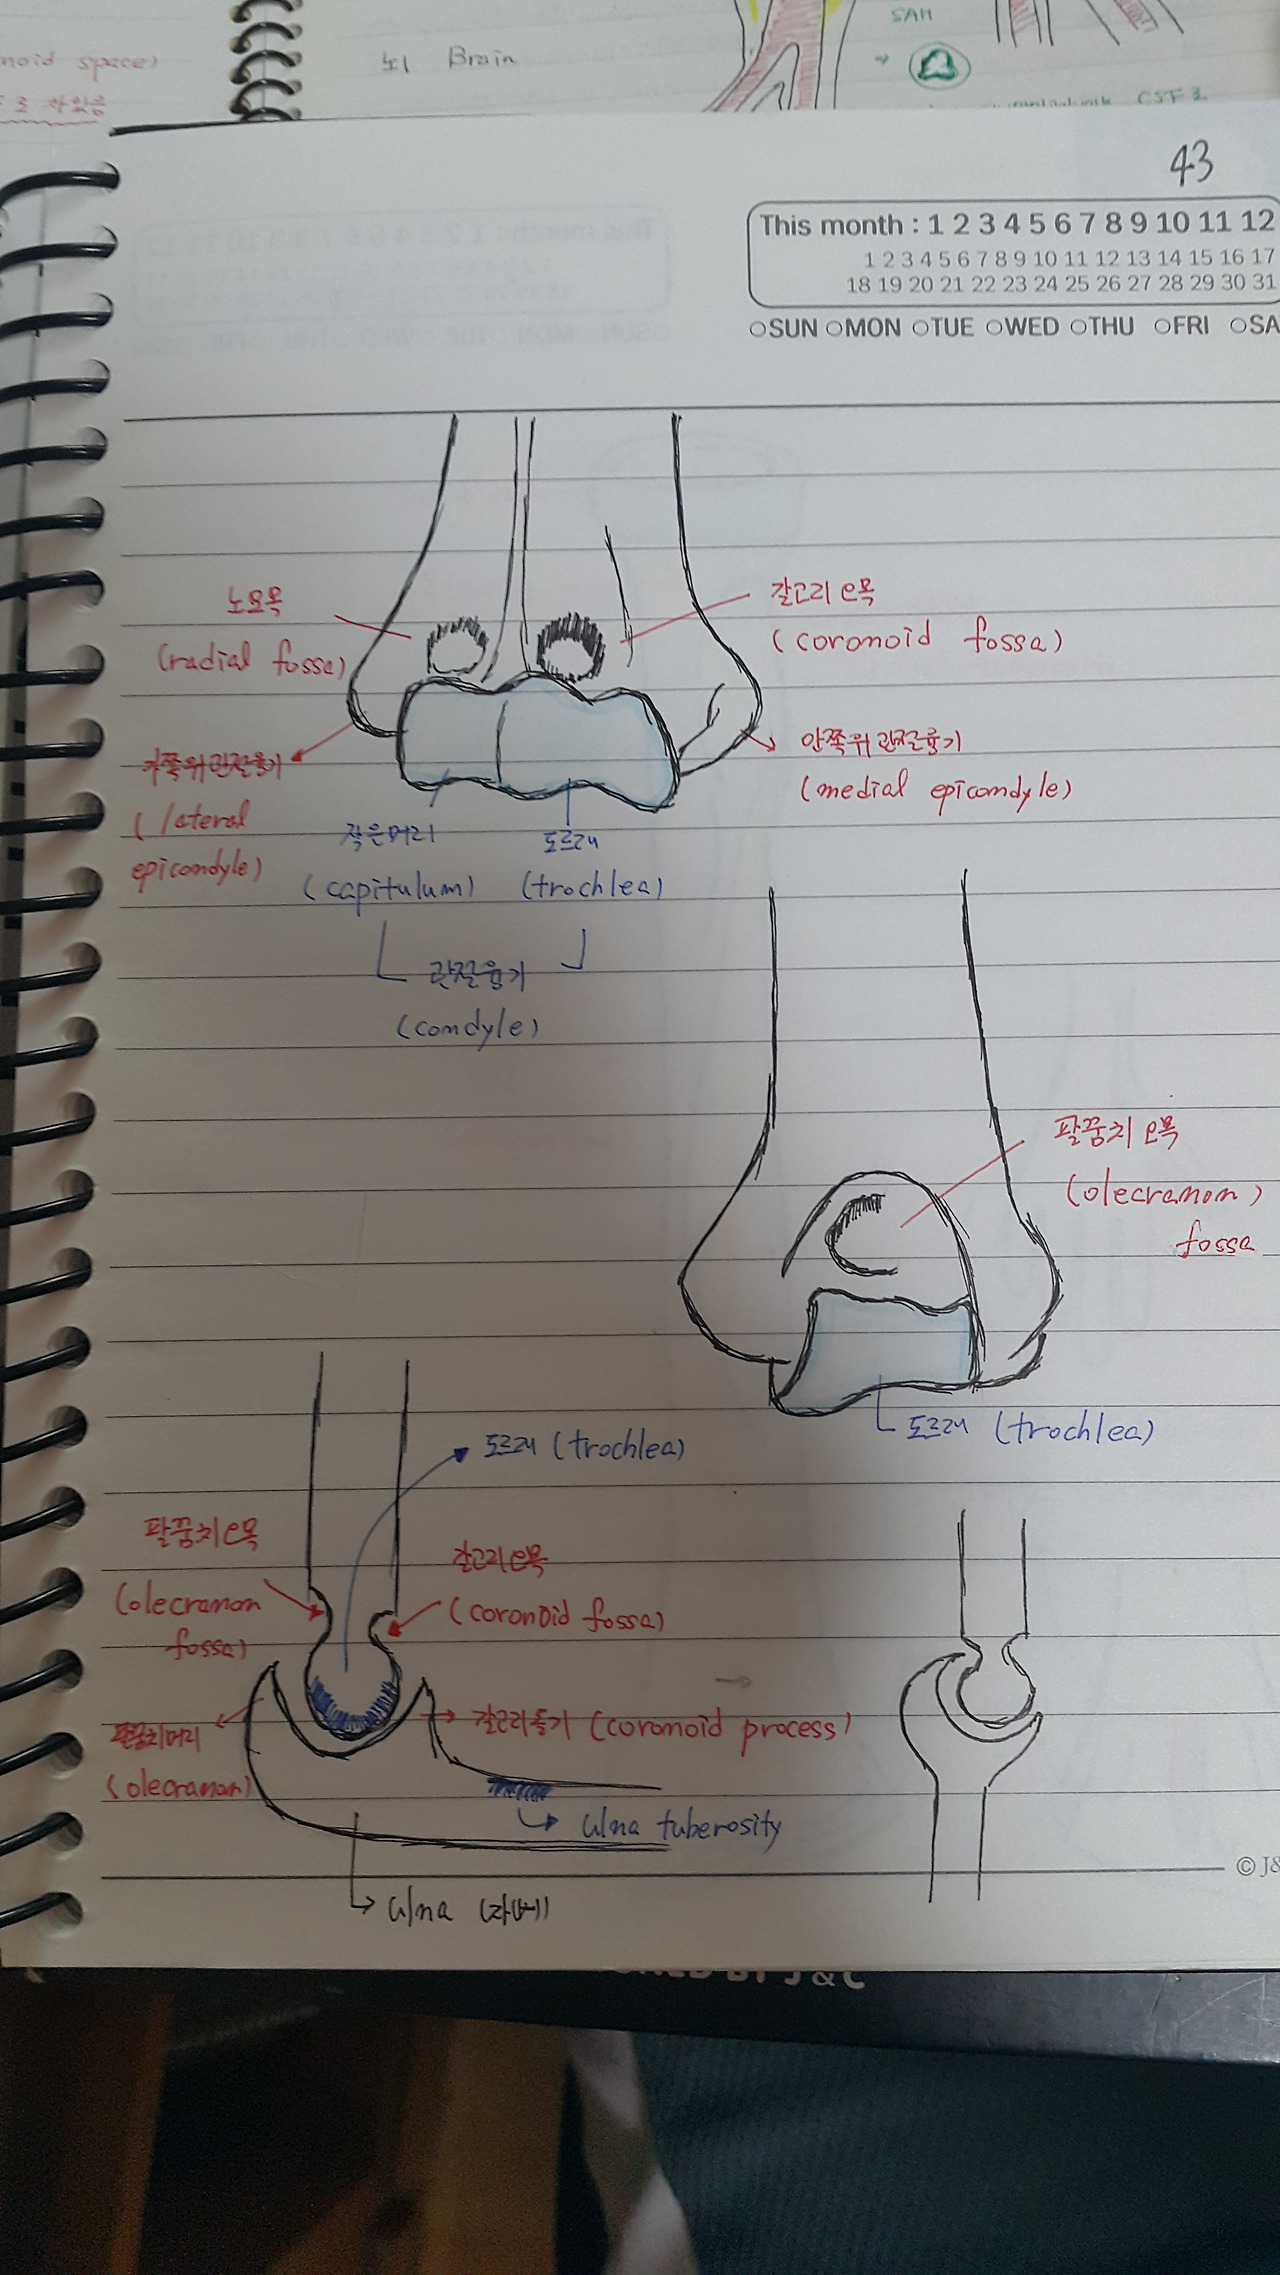 noid space)
뇌 Brain
SAH
CSF로
43
This month : 1 2 3 4 5 6 7 8 9 10 11 12
1 2 3 4 5 6 7 8 9 10 11 12 13 14 15 16 17
18 19 20 21 22 23 24 25 26 27 28 29 30 31
SUN MON TUE WED THU FRI SA
노오목
(radial fossa)
갈고리오목
(coronoid fossa)
가쪽위관절융기
(lateral
epicondyle)
안쪽위관절융기
(medial epicondyle)
작은머리
(capitulum)
도르래
(trochlea)
관절융기
(condyle)
팔꿈치오목
(olecranon)
fossa
도르래 (trochlea)
도르래 (trochlea)
팔꿈치오목
(olecranon
fossa)
갈고리오목
(coronoid fossa)
팔꿈치머리
(olecranon)
갈고리돌기 (coronoid process)
ulna tuberosity
ulna (자뼈)
© J&
BY J&C